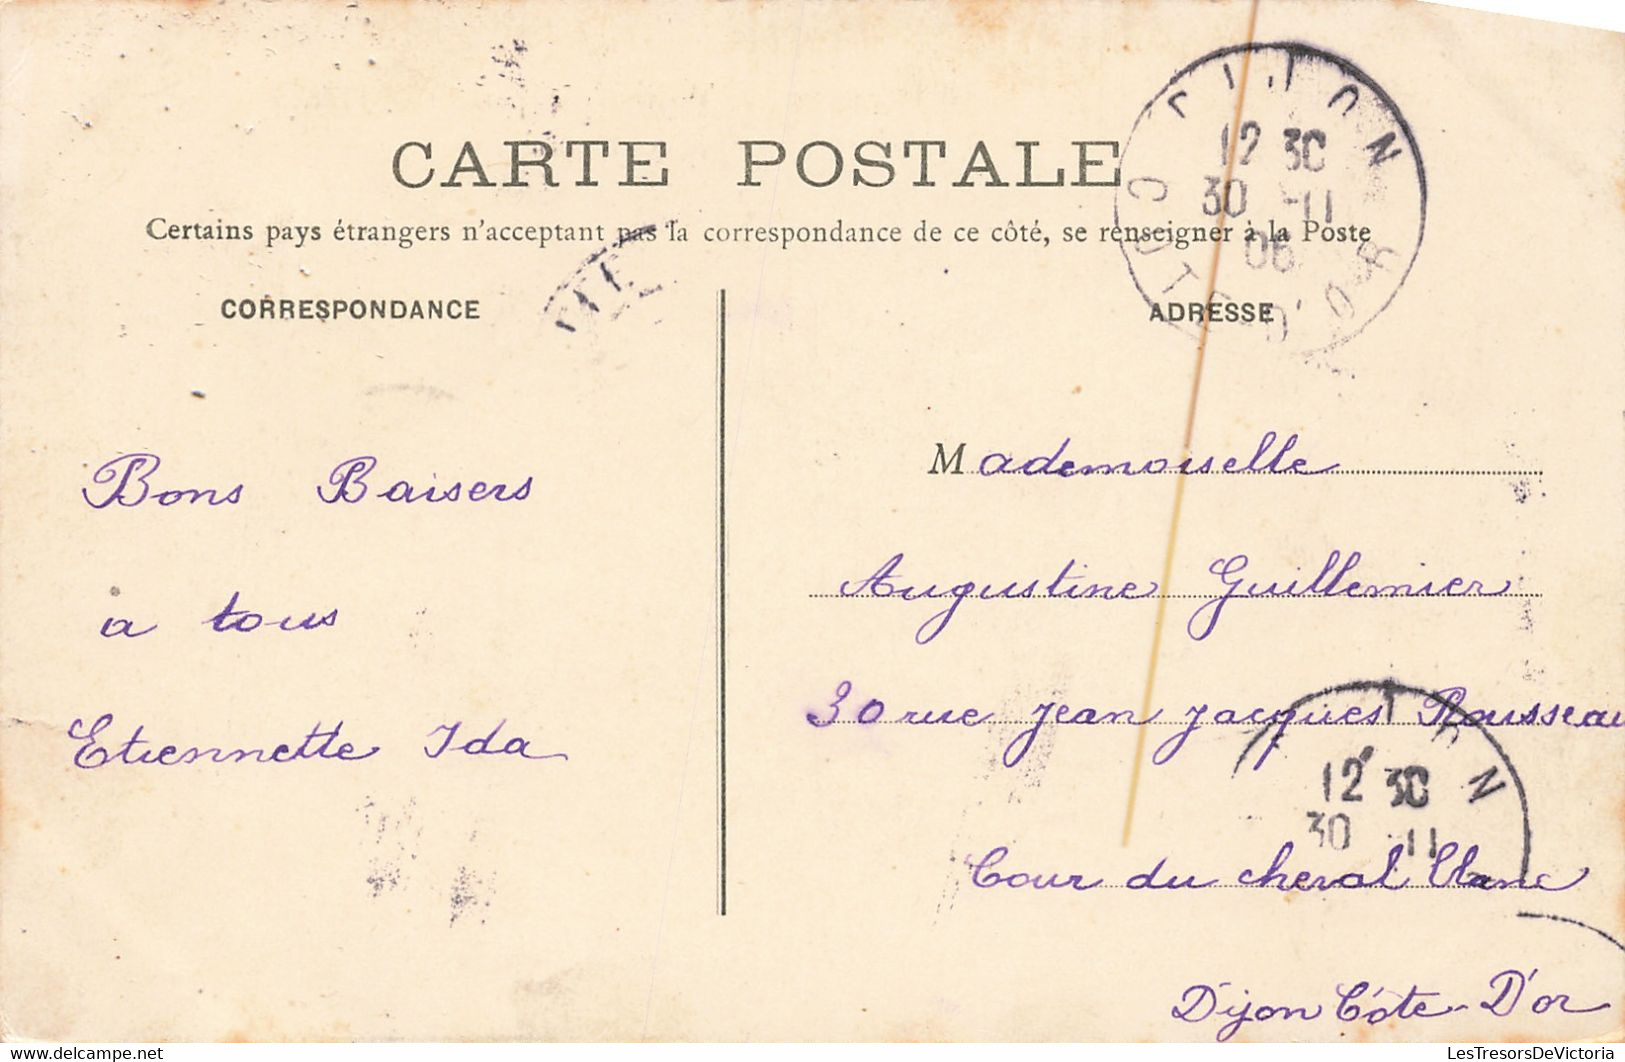 CARTE POSTALE
Certains pays étrangers n'acceptant pas la correspondance de ce côté, se renseigner à la Poste
CORRESPONDANCE
Bons Baisers
a tous
Etiennette Ida
DIJON
12 30
30 -11
06
COTE-D'OR
ADRESSE
Mademoiselle
Augustine Guillemier
30 rue jean jacques Rousseau
12 30
30 11
Cour du cheval blanc
Dijon Côte-D'or
LesTresorsDeVictoria